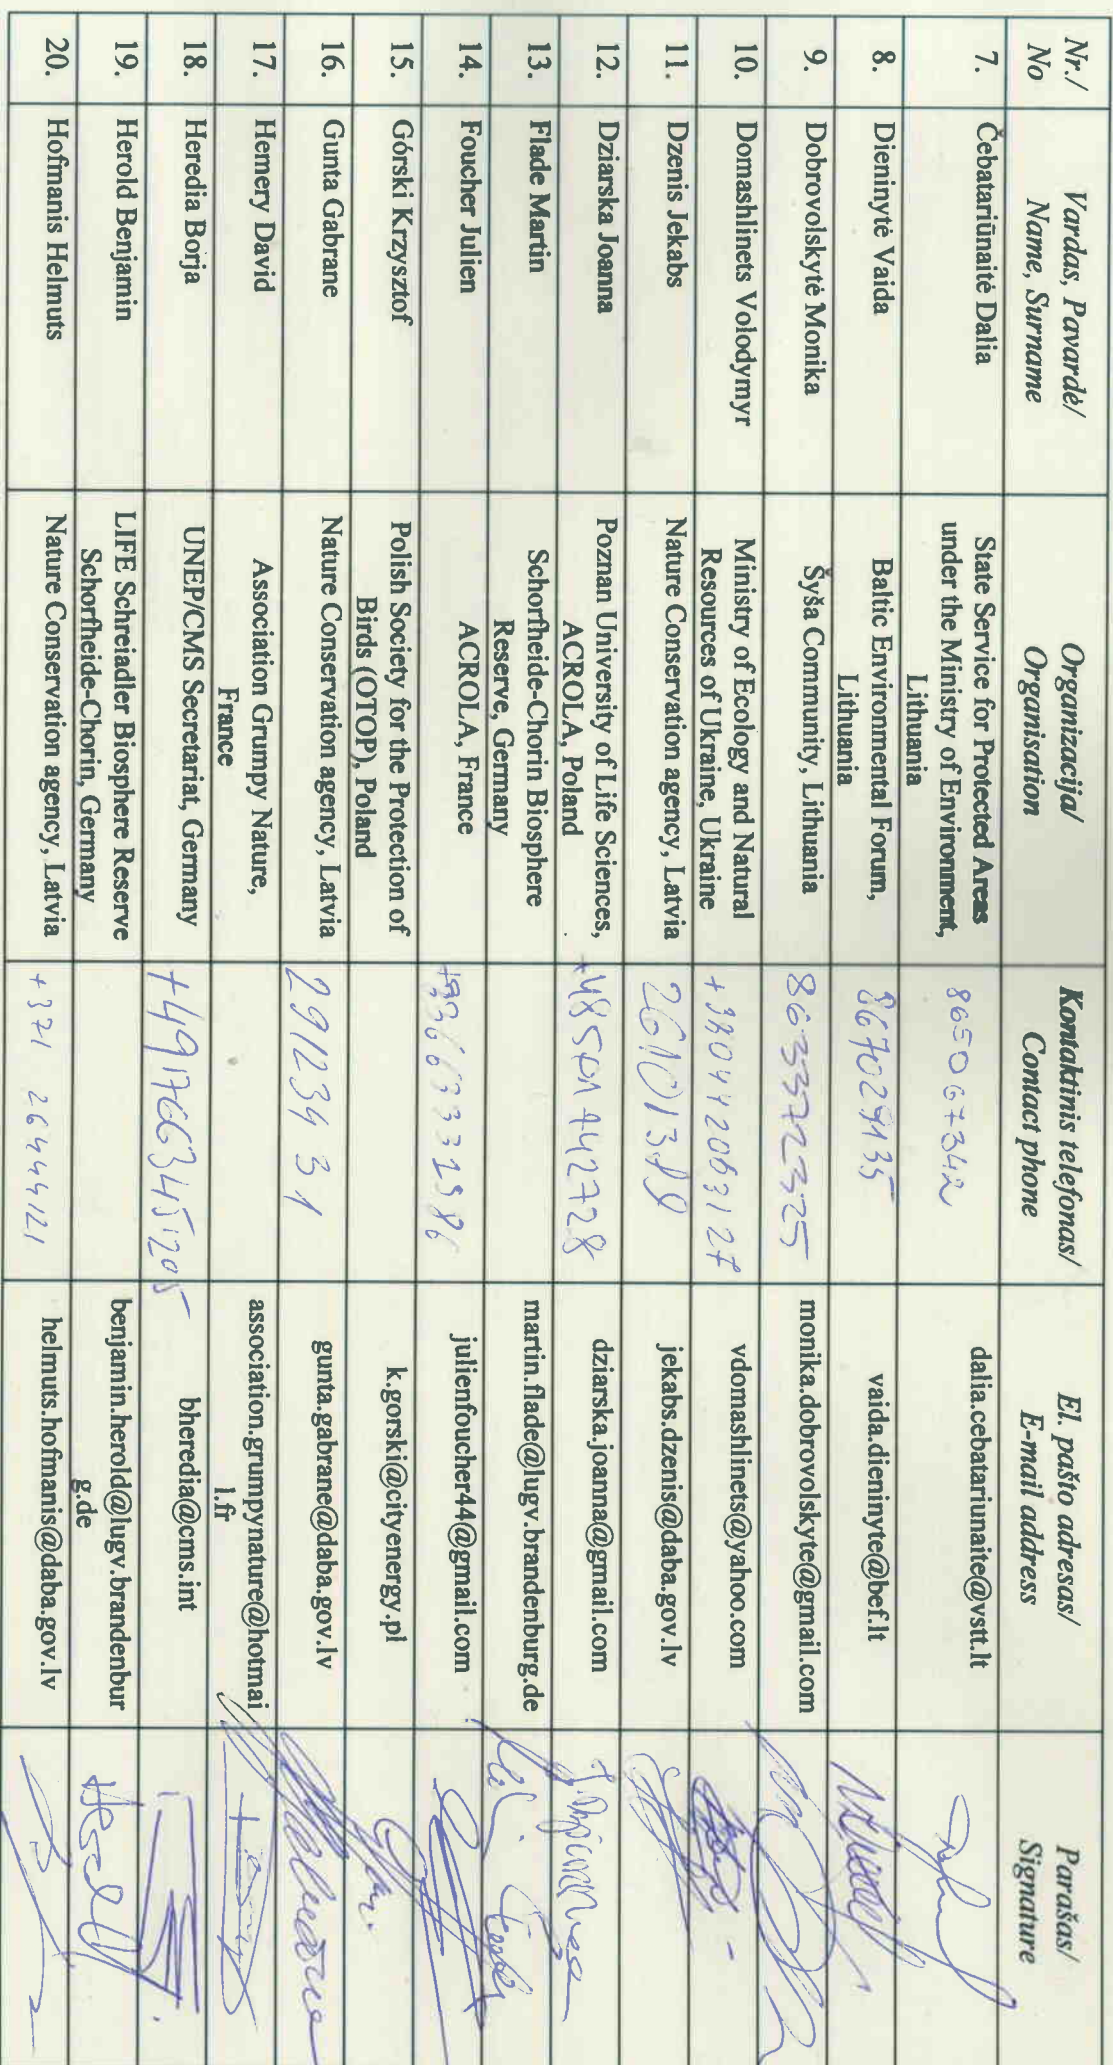 Nr./ No Vardas, Pavardė/ Name, Surname Organizacija/ Organisation Kontaktinis telefonas/ Contact phone El. pašto adresas/ E-mail address Parašas/ Signature
7. Čebatariūnaitė Dalia State Service for Protected Areas under the Ministry of Environment, Lithuania 865067342 dalia.cebatariunaite@vstt.lt
8. Dieninytė Vaida Baltic Environmental Forum, Lithuania 867029135 vaida.dieninyte@bef.lt
9. Dobrovolskytė Monika Šyša Community, Lithuania 863372325 monika.dobrovolskyte@gmail.com
10. Domashlinets Volodymyr Ministry of Ecology and Natural Resources of Ukraine, Ukraine +380442063127 vdomashlinets@yahoo.com
11. Dzenis Jekabs Nature Conservation agency, Latvia jekabs.dzenis@daba.gov.lv
12. Dziarska Joanna Poznan University of Life Sciences, ACROLA, Poland +48501442728 dziarska.joanna@gmail.com
13. Flade Martin Schorfheide-Chorin Biosphere Reserve, Germany martin.flade@lugv.brandenburg.de
14. Foucher Julien ACROLA, France julienfoucher44@gmail.com
15. Górski Krzysztof Polish Society for the Protection of Birds (OTOP), Poland k.gorski@cityenergy.pl
16. Gunta Gabrane Nature Conservation agency, Latvia 29123431 gunta.gabrane@daba.gov.lv
17. Hemery David Association Grumpy Nature, France association.grumpynature@hotmai l.fr
18. Heredia Borja UNEP/CMS Secretariat, Germany +4917663451205 bheredia@cms.int
19. Herold Benjamin LIFE Schreiadler Biosphere Reserve Schorfheide-Chorin, Germany benjamin.herold@lugv.brandenbur g.de Herold
20. Hofmanis Helmuts Nature Conservation agency, Latvia +371 26444121 helmuts.hofmanis@daba.gov.lv